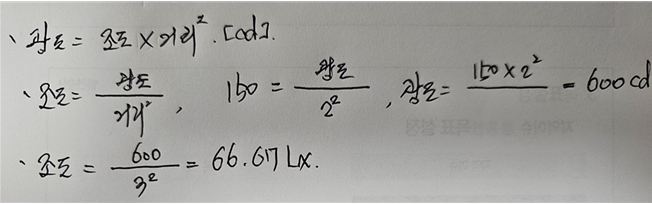 、광도 = 조도 × 거리². [cd].
、조도 = 광도 / 거리², 150 = 광도 / 2², 광도 = 150 × 2² = 600 cd
、조도 = 600 / 3² = 66.67 Lx.